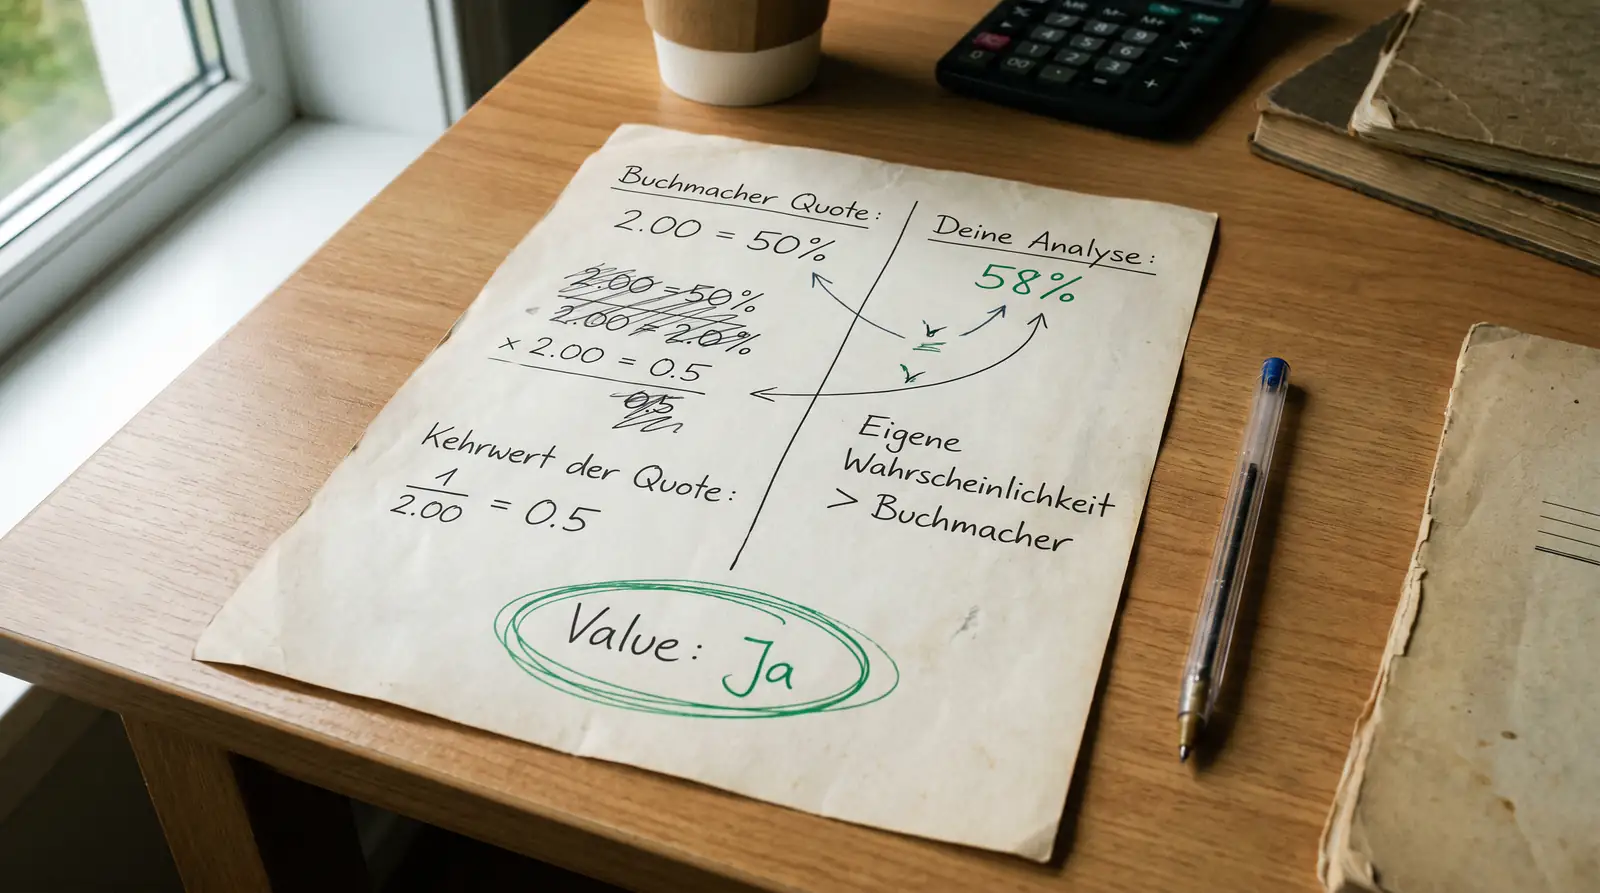 Buchmacher Quote:
2.00 = 50%
2.00 = 50%
2.00 = 2.0%
× 2.00 = 0.5
0.5
Kehrwert der Quote:
1
2.00 = 0.5
Deine Analyse:
58%
Eigene
Wahrscheinlichkeit
> Buchmacher
Value: Ja